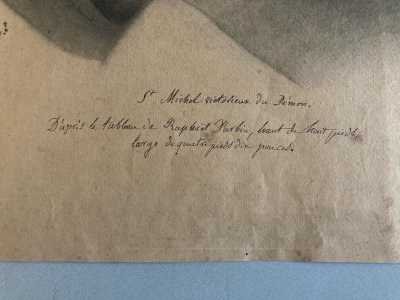 St Michel victorieux du Démon.
D'après le tableau de Raphael d'Urbin, haut de huit pieds
large de quatre pieds dix pouces.